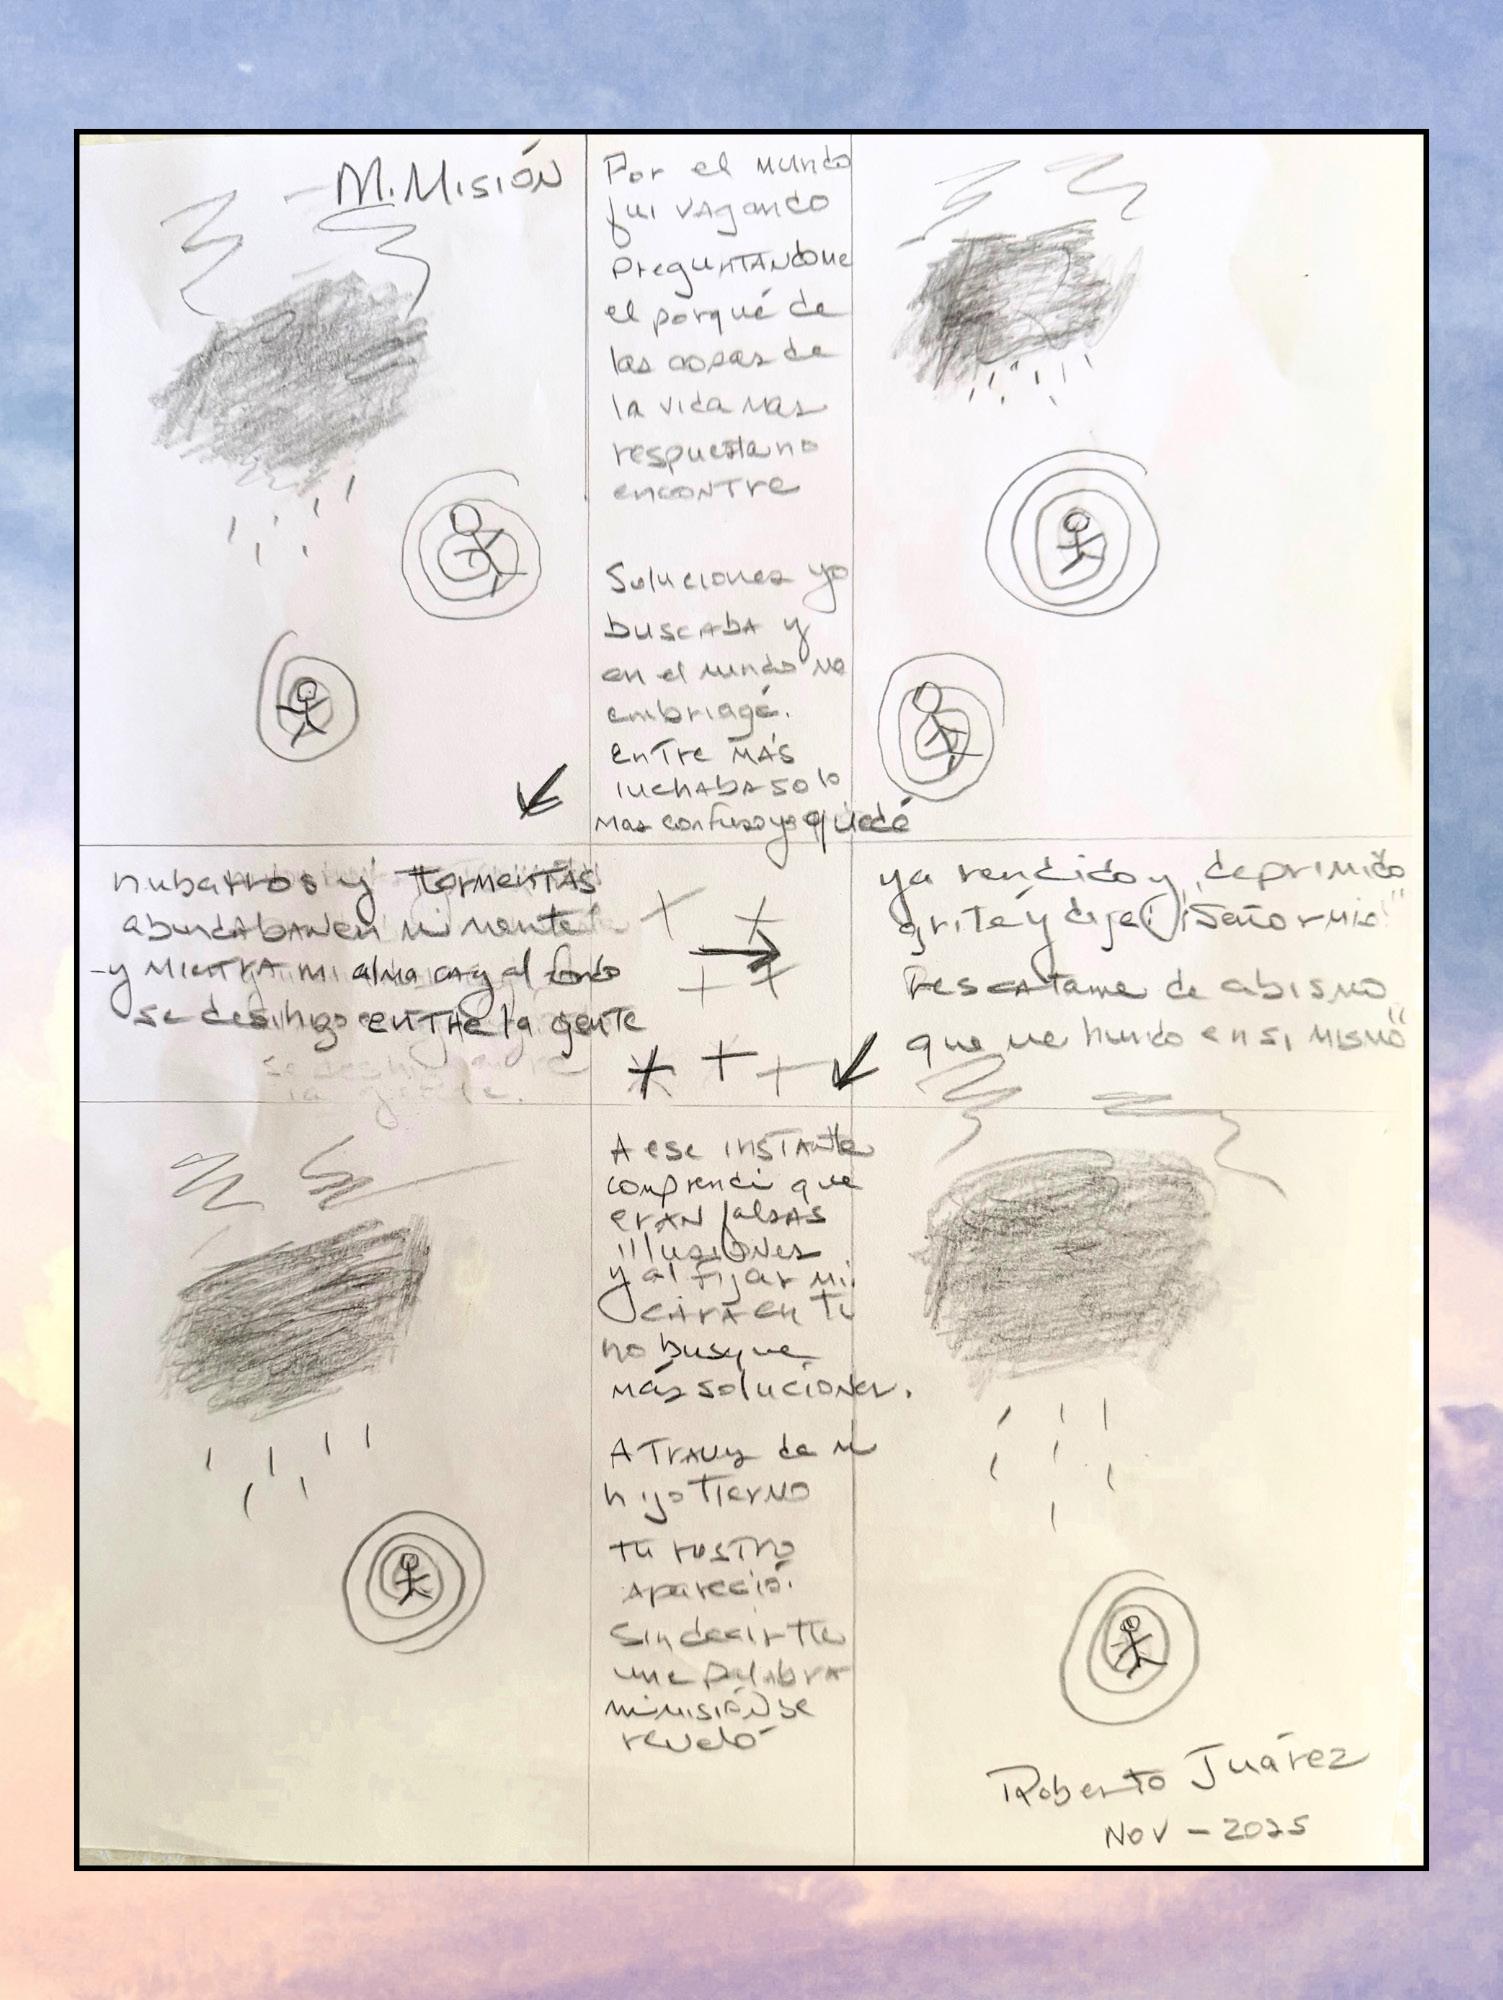 Mi Misión
Por el mundo
fui vagando
Preguntándome
el porqué de
las cosas de
la vida mas
respuesta no
encontre
Soluciones yo
buscaba y
en el mundo me
embriagé.
Entre más
luchaba solo
mas confuso yo quedé
nubarros y tormentas
abundaban en mi mente
y mientra mi alma cay al fondo
se deshizo entre la gente
ya rendido y deprimido
grité y dije ¡Señor mio!
Rescatame de abismo
que me hundo en si mismo"
A ese instante
comprendi que
eran falsas
illusiones
y al fijar mi
cara en ti
no busque
más soluciones.
A travz de mi
hijo tierno
tu rostro
apareció.
Sin decirtte
une palabra
mi misión se
reveló
Roberto Juárez
Nov - 2025